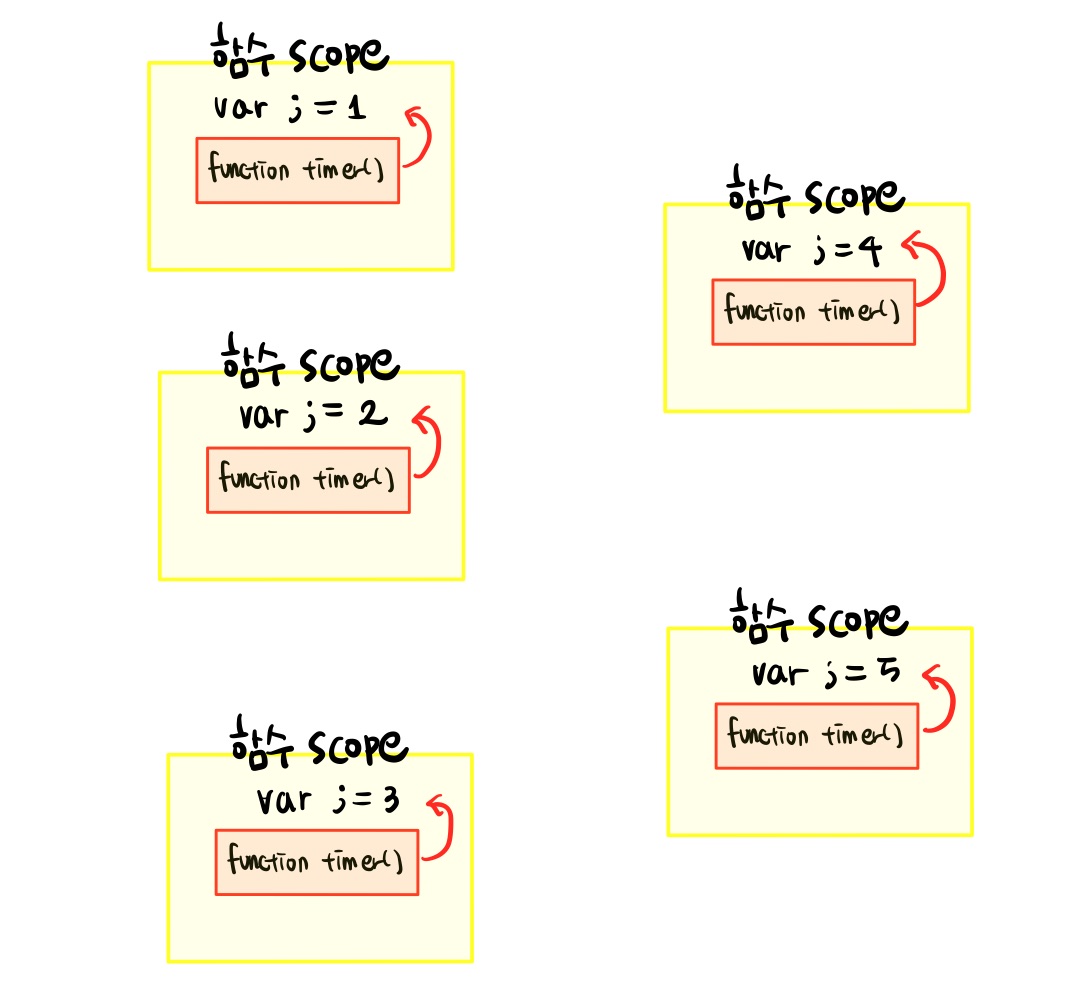 함수 scope
var j = 1
function timer()
함수 scope
var j = 2
function timer()
함수 scope
var j = 3
function timer()
함수 scope
var j = 4
function timer()
함수 scope
var j = 5
function timer()